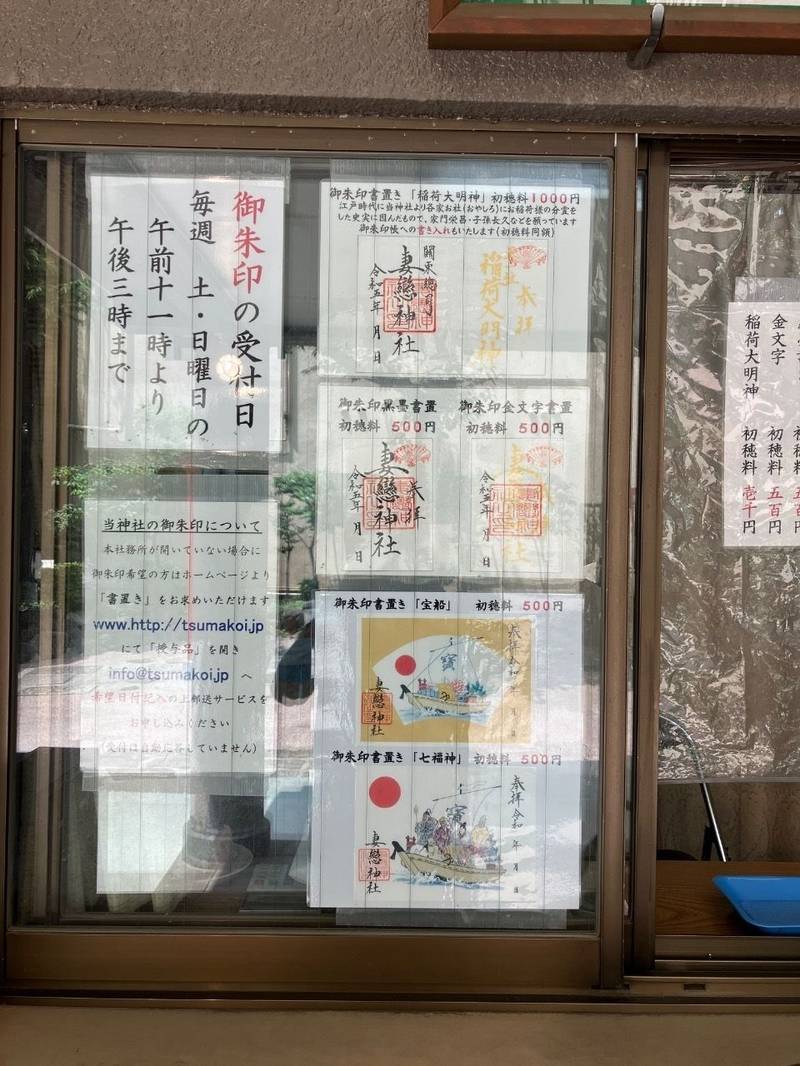 御朱印の受付日
毎週 土・日曜日の
午前十一時より
午後三時まで
当神社の御朱印について
本社務所が開いていない場合に
御朱印希望の方はホームページより
「書置き」をお求めいただけます
www.http://tsumakoi.jp
にて「授与品」を開き
info@tsumakoi.jp へ
希望日付記入の上郵送サービスを
お申し込みください
(受付は自動応答していません)
御朱印書置き「稲荷大明神」初穂料1000円
江戸時代に当神社より各家お社(おやしろ)にお稲荷様の分霊を
した史実に因んだもので、家門栄昌・子孫長久などを願っています
御朱印帳への書き入れもいたします(初穂料同額)
奉拝
稲荷大明神
関東総司
妻戀神社
令和五年 月 日
御朱印黒墨書置
初穂料 500円
奉拝
妻戀神社
令和五年 月 日
御朱印金文字書置
初穂料 500円
妻戀神社
令和五年 月 日
御朱印書置き「宝船」 初穂料 500円
奉拝 令和 年 月 日
寳
妻戀神社
御朱印書置き「七福神」 初穂料 500円
奉拝 令和 年 月 日
寳
妻戀神社
初穂料
金文字 初穂料 五百円
稲荷大明神 初穂料 壱千円